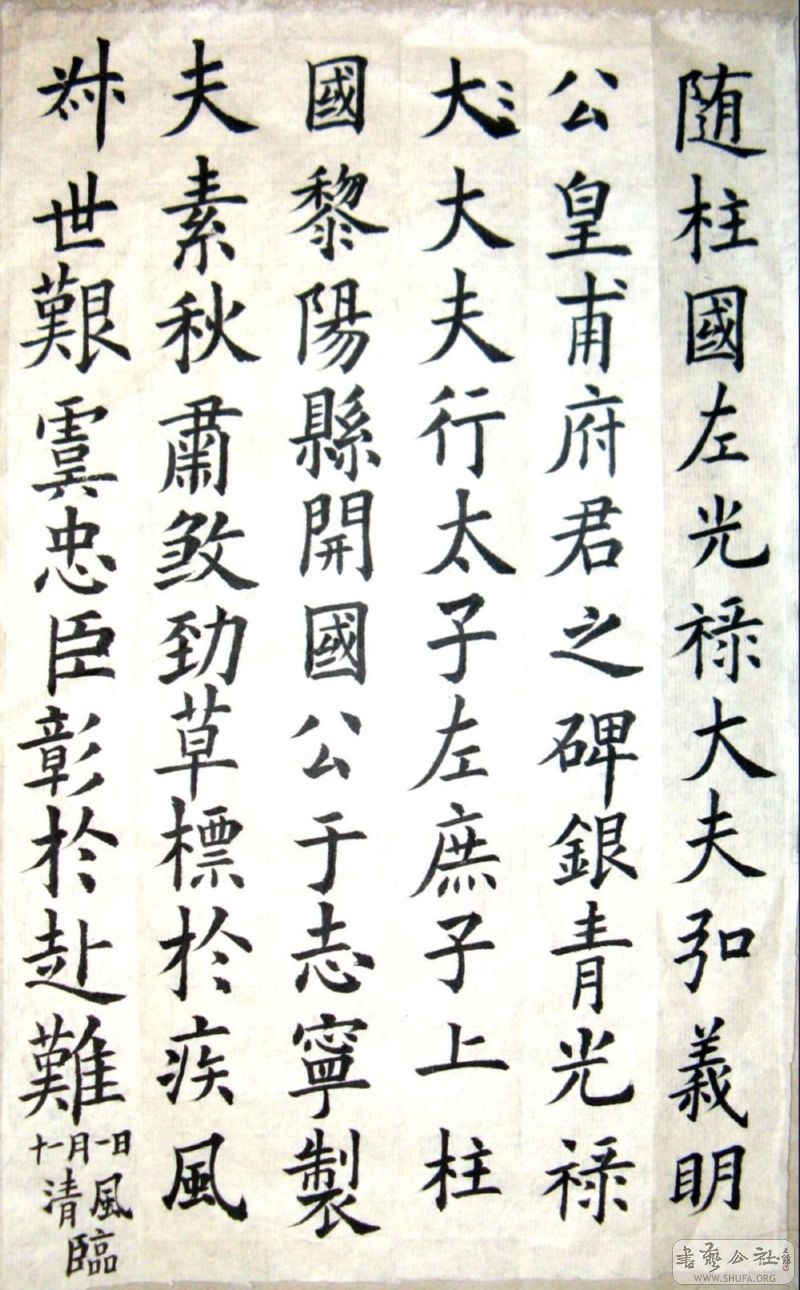 随柱國左光禄大夫弘義明
公皇甫府君之碑銀青光禄
大大夫行太子左庶子上柱
國黎陽縣開國公于志寧製
夫素秋肅煞勁草標於疾風
叔世艱虞忠臣彰於赴難
十一月一日
清風臨
書藝公社
WWW.SHUFA.ORG